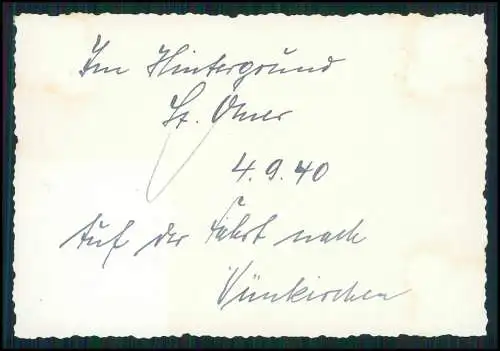 Im Hintergrund
St. Omer
4.9.40
Auf der Fahrt nach
Dünkirchen